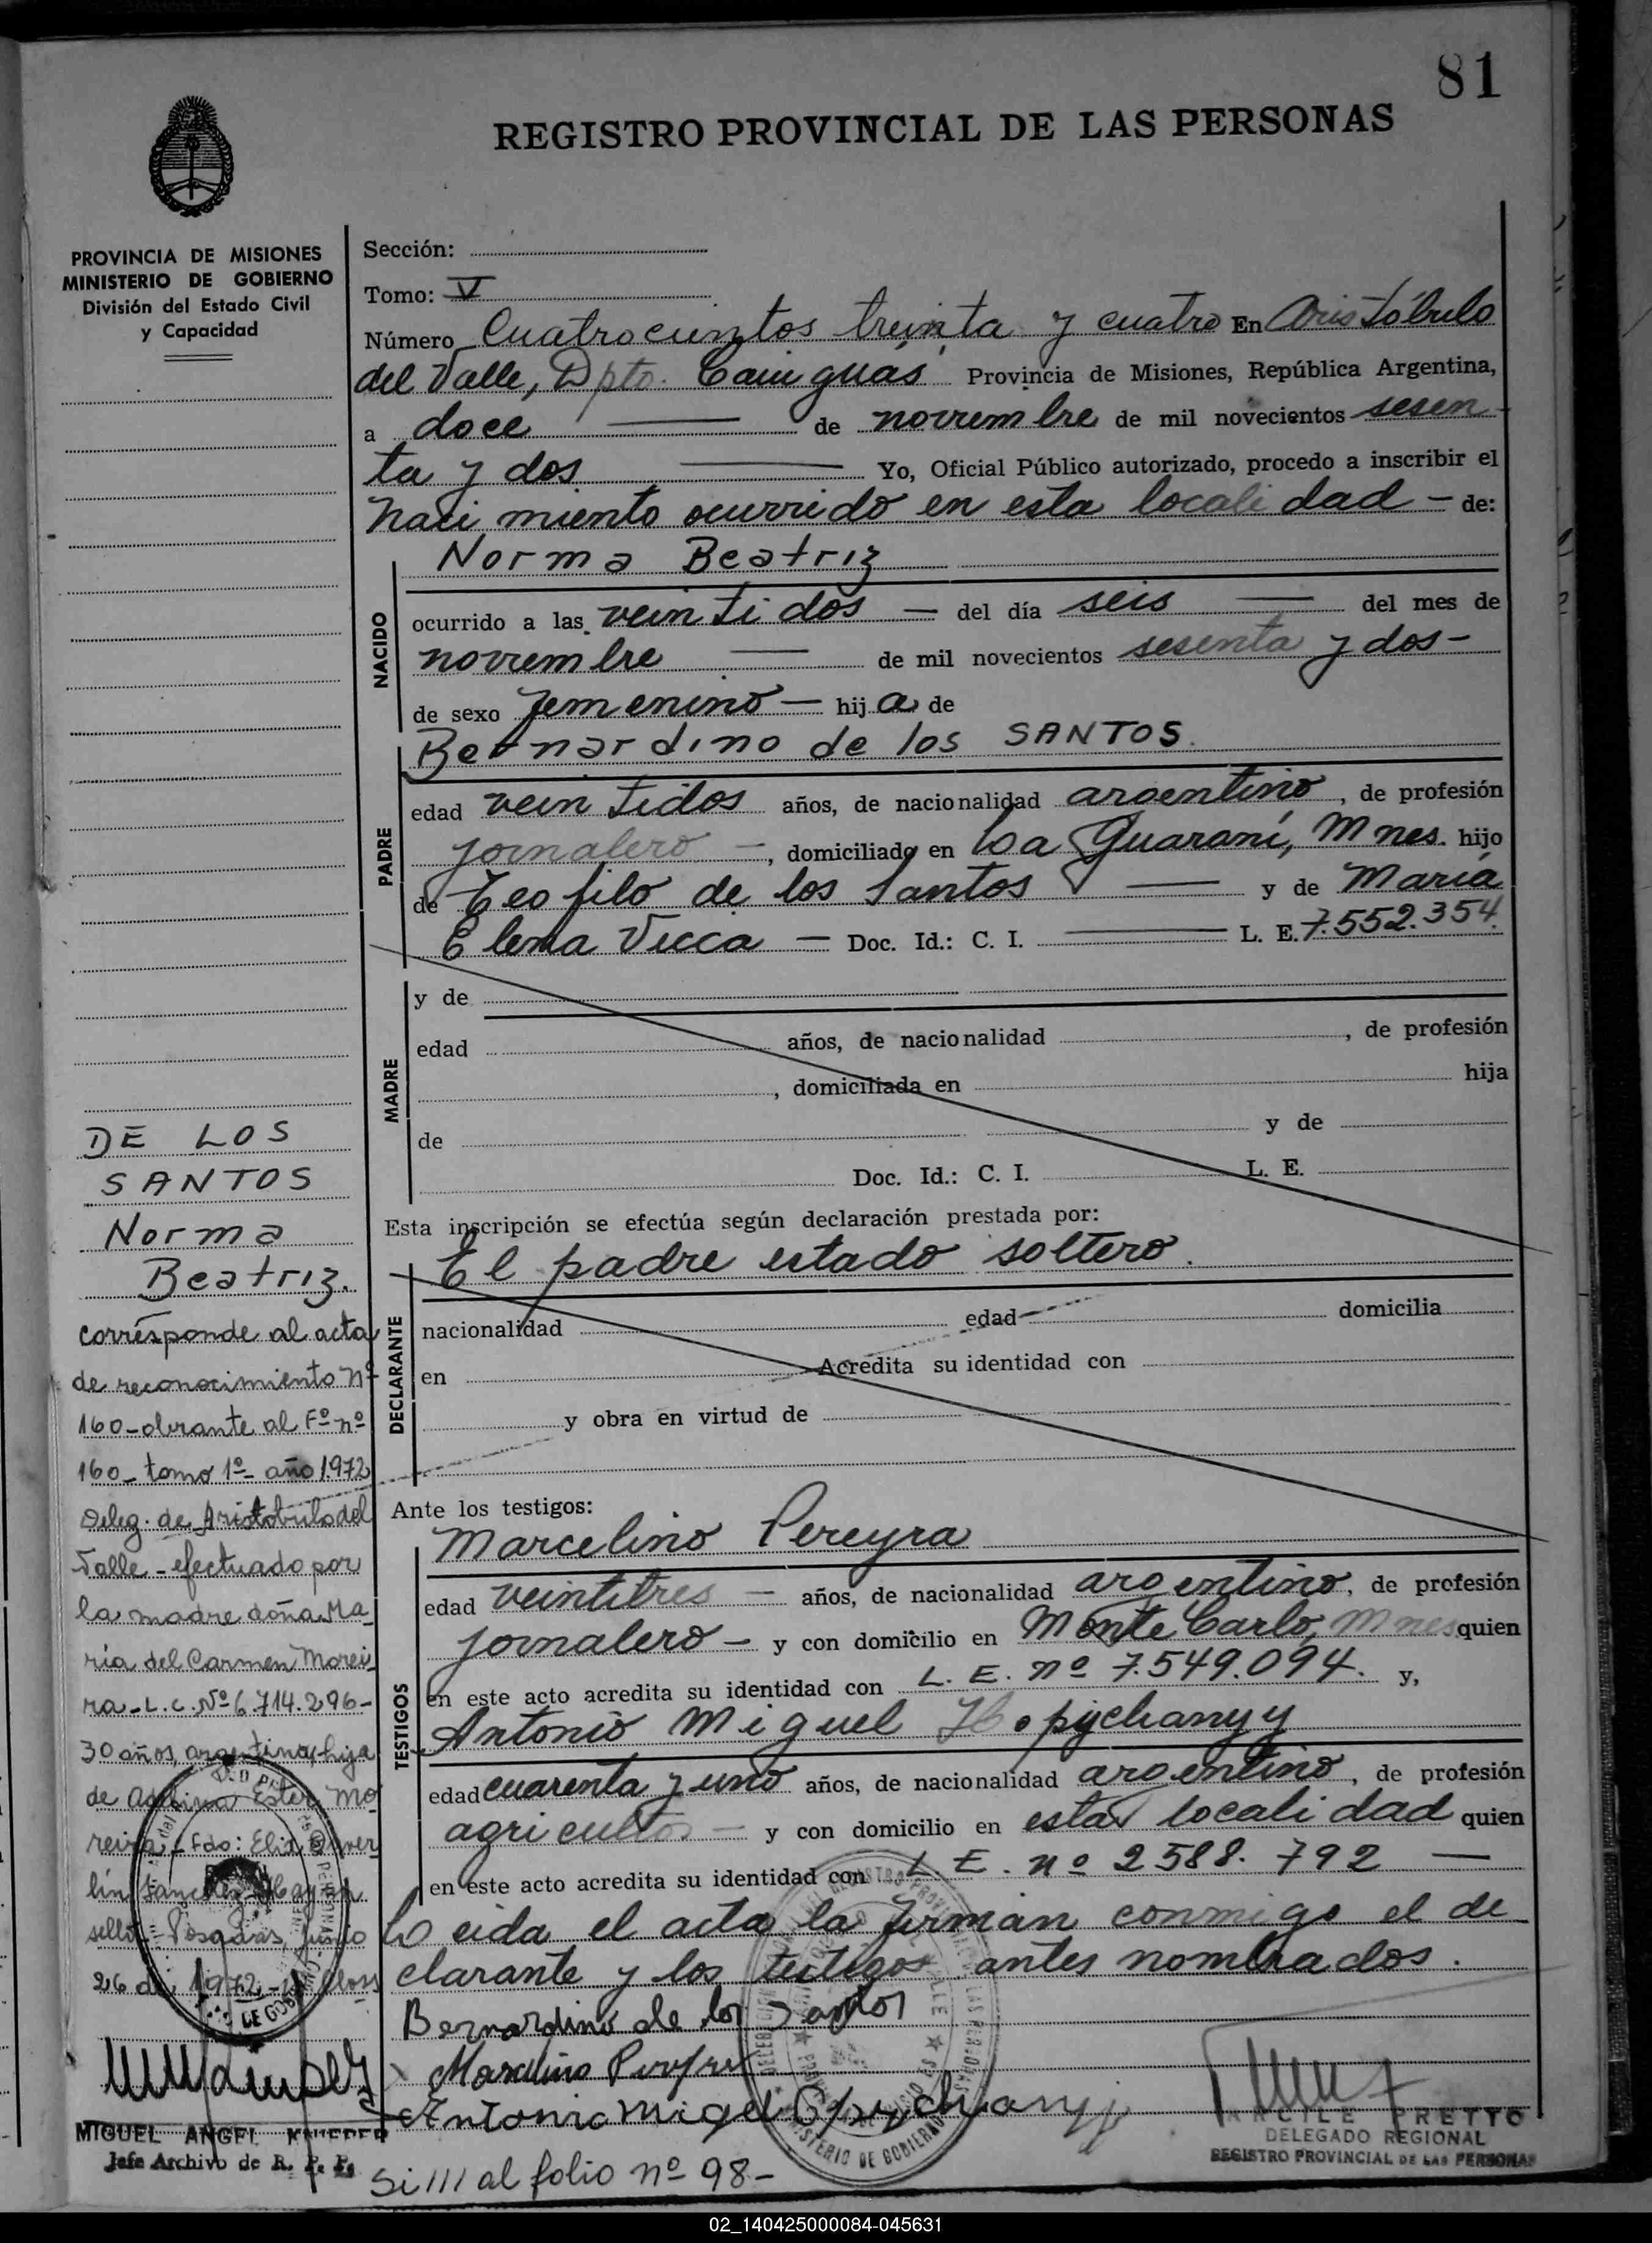 81
REGISTRO PROVINCIAL DE LAS PERSONAS
PROVINCIA DE MISIONES
MINISTERIO DE GOBIERNO
División del Estado Civil
y Capacidad
Sección:
Tomo: V
Número Cuatrocientos treinta y cuatro En Aristóbulo
del Valle, Dpto. Cainguás Provincia de Misiones, República Argentina,
a doce de noviembre de mil novecientos sesen
ta y dos Yo, Oficial Público autorizado, procedo a inscribir el
Nacimiento ocurrido en esta localidad - de:
Norma Beatriz
NACIDO
ocurrido a las veintidos - del día seis del mes de
noviembre de mil novecientos sesenta y dos-
de sexo femenino - hija de
Bernardino de los SANTOS.
PADRE
edad veintidos años, de nacionalidad argentino, de profesión
jornalero -, domiciliado en Guaraní, Mnes. hijo
de Teofilo de los Santos y de María
Elena Vicca - Doc. Id.: C. I. L. E. 7.552.354.
MADRE
y de
edad años, de nacionalidad , de profesión
, domiciliada en hija
de y de
Doc. Id.: C. I. L. E.
Esta inscripción se efectúa según declaración prestada por:
El padre estado soltero.
DECLARANTE
nacionalidad edad domicilia
en Acredita su identidad con
y obra en virtud de
Ante los testigos:
Marcelino Pereyra
TESTIGOS
edad veintitres - años, de nacionalidad argentino, de profesión
jornalero - y con domicilio en Monte Carlo, Mnes quien
en este acto acredita su identidad con L. E. nº 7.549.094. y,
Antonio Miguel
edad cuarenta y uno años, de nacionalidad argentino, de profesión
agricultor - y con domicilio en esta localidad quien
en este acto acredita su identidad con L. E. nº 2588.792 -
Leida el acta la firman conmigo el de
clarante y los testigos antes nombrados.
Bernardino de los Santos
Antonio Migel
DELEGADO REGIONAL
REGISTRO PROVINCIAL DE LAS PERSONAS
Si /// al folio nº 98-
DE LOS
SANTOS
Norma
Beatriz.
corresponde al acta
de reconocimiento nº
160-obrante al Fº nº
160-tomo 1º- año 1972
Deleg. de Aristobulo del
Valle - efectuado por
la madre doña Ma
ria del Carmen Morei
ra-L.C. Nº 6.714.296-
30 años, argentina, hija
de Ester Mo
reira - Fdo:
sello - Posadas, Junio
26 de 1972 -
MIGUEL ANGEL KNIEPER
Jefe Archivo de R. P. P.
02_140425000084-045631